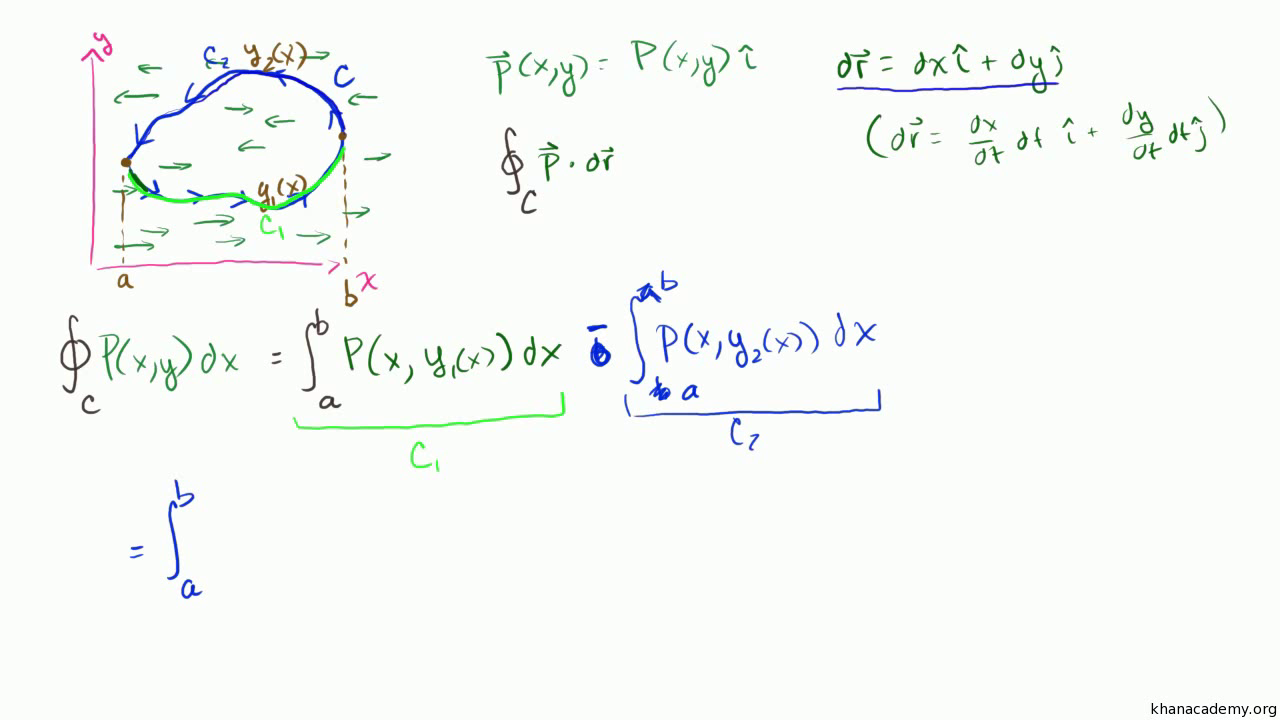 y
C₂ y₂(x)
C
y₁(x)
C₁
a
b x
P⃗(x,y) = P(x,y) î
dr⃗ = dx î + dy ĵ
(dr⃗ = dx/dt dt î + dy/dt dt ĵ)
∮_C P⃗ · dr⃗
∮_C P(x,y) dx = ∫_a^b P(x, y₁(x)) dx − ∫_a^b P(x, y₂(x)) dx
C₁ C₂
= ∫_a^b
khanacademy.org